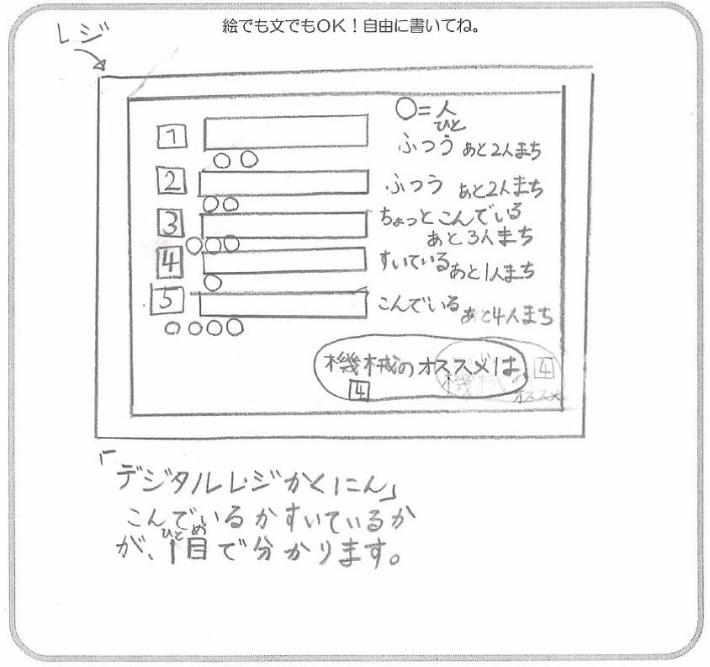 絵でも文でもOK！自由に書いてね。
レジ
○=人
ひと
1
ふつう あと2人まち
2
ふつう あと2人まち
3
ちょっとこんでいる
あと3人まち
4
すいている あと1人まち
5
こんでいる あと4人まち
機械のオススメは、
4
4
機械の
オススメ
「デジタルレジかくにん」
こんでいるかすいているか
ひとめ
が、1目で分かります。